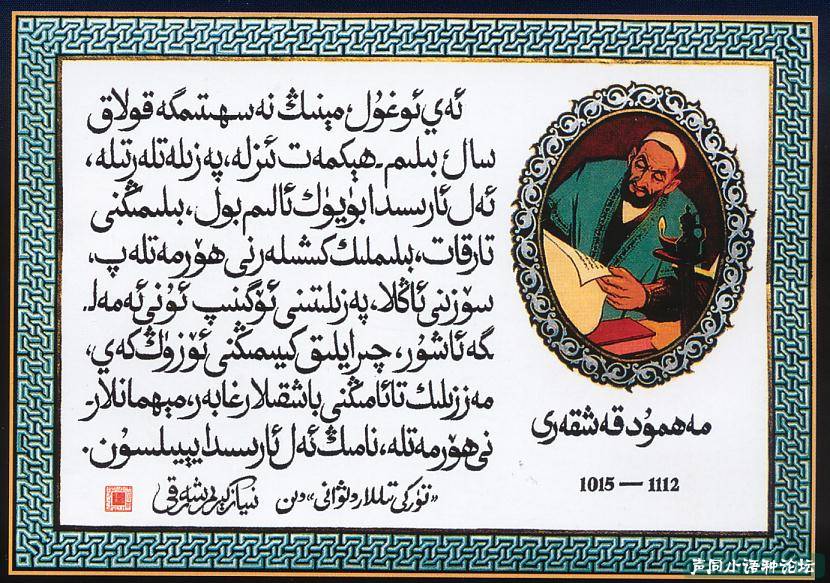 ئەي ئوغۇل، مېنىڭ نەسىھىتىمگە قۇلاق
سال، بىلىم - ھېكمەت ئىزلە، پەزىلەتلەرتىلە،
ئەل ئارىسىدا بۈيۈك ئالىم بول، بىلىمىڭنى
تارقات، بىلىملىك كىشىلەرنى ھۆرمەتلەپ،
سۆزىنى ئاڭلا، پەزىلىتىنى ئۆگىنىپ ئۇنى ئەمەل-
گە ئاشۇر، چىرايلىق كىيىمىڭنى ئۆزۈڭ كەي،
مەززىلىك تائامىڭنى باشقىلارغا بەر، مېھمانلار-
نى ھۆرمەتلە، نامىڭ ئەل ئارىسىدا يېيىلسۇن.
«تۈركى تىللار دىۋانى» دىن
مەھمۇد قەشقەرى
1015 — 1112
声同小语种论坛